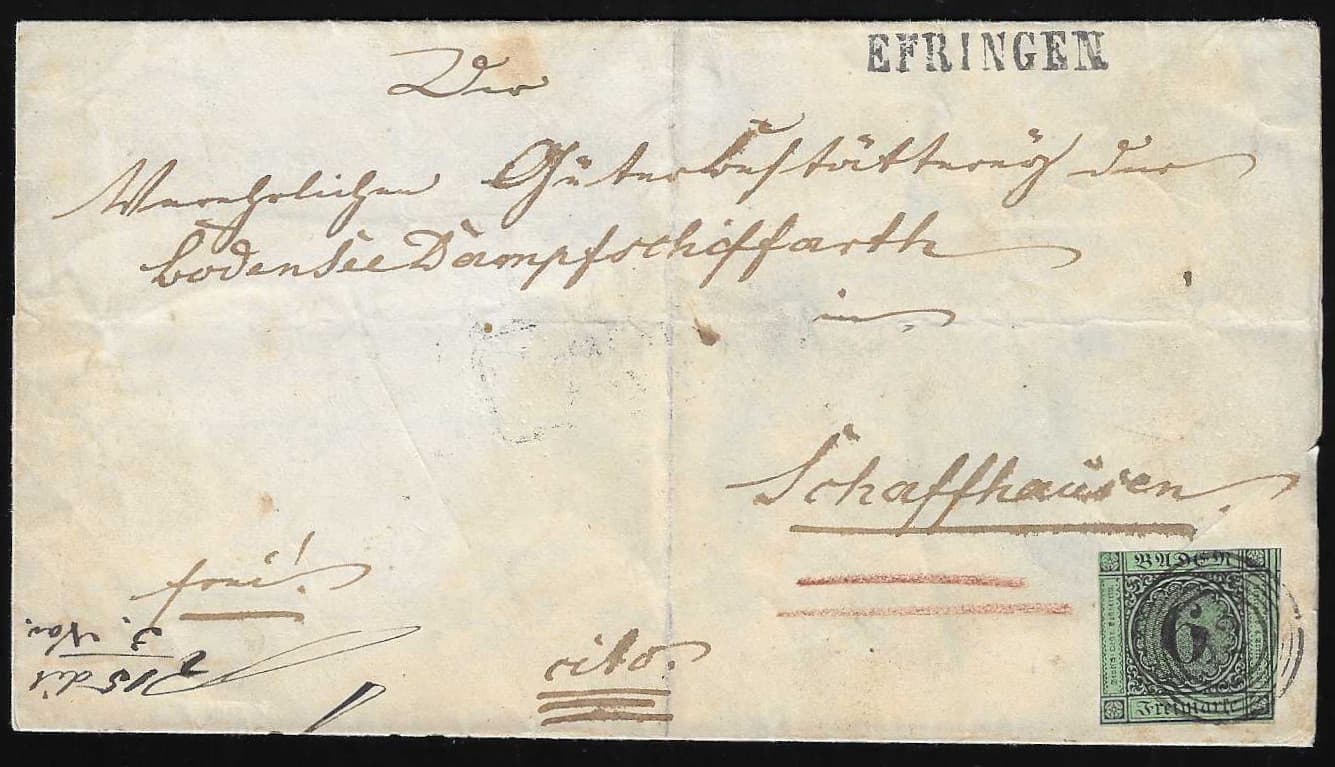 EFRINGEN
Der
Verehrlichen Güterbestätterey der
Bodensee Dampfschiffarth
in
Schaffhausen.
frei!
cito.
BADEN
6
Freimarke